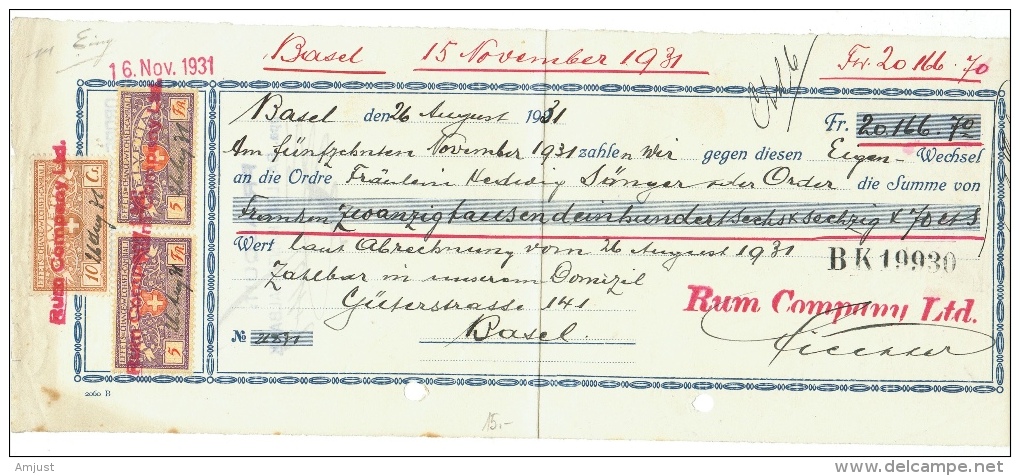 Basel 15 November 1931 Fr. 20 166.70
Eing
16. Nov. 1931
Basel den 26 August 1931 Fr. 20.166.70
Am fünfzehnten November 1931 zahlen Wir gegen diesen Eigen-Wechsel
an die Ordre Fräulein Hedwig Sänger oder Order die Summe von
Franken Zwanzigtausendeinhundertsechs & sechzig & 70 cts
Wert laut Abrechnung vom 26 August 1931
BK19930
Zahlbar in unserem Domizil
Güterstrasse 141
Basel.
Rum Company Ltd.
№
2060 B
15.-
Rum Company Ltd.
Rum Company Ltd.
Rum Company Ltd.
EFFETS CHANGE
HELVETIA
5 Fr.
5
10 Ct.
Amjust
www.delcampe.net